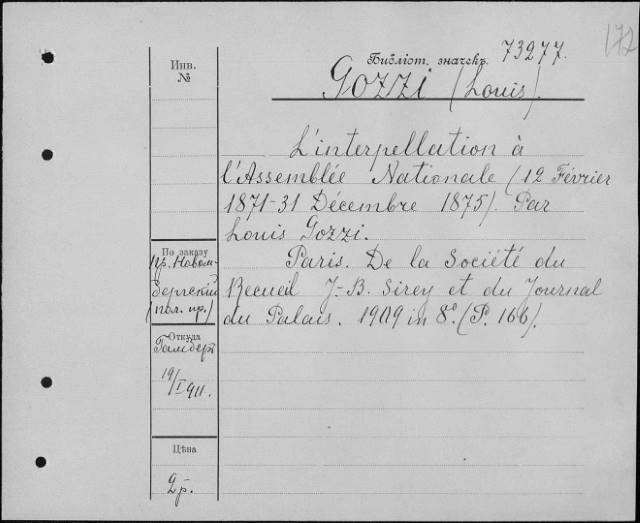 172
Библіот. значекъ. 73277.
Инв.
№
Gozzi (Louis).
L'interpellation à
l'Assemblée Nationale (12 Février
1871-31 Décembre 1875). Par
Louis Gozzi.
Paris. De la Société du
Recueil J-B. Sirey et du Journal
du Palais. 1909 in 8º. (P. 166).
По заказу
пр. Новом-
бергскій
(пол. пр.)
Откуда
Гамберъ
19/I 911.
Цѣна
2 р.